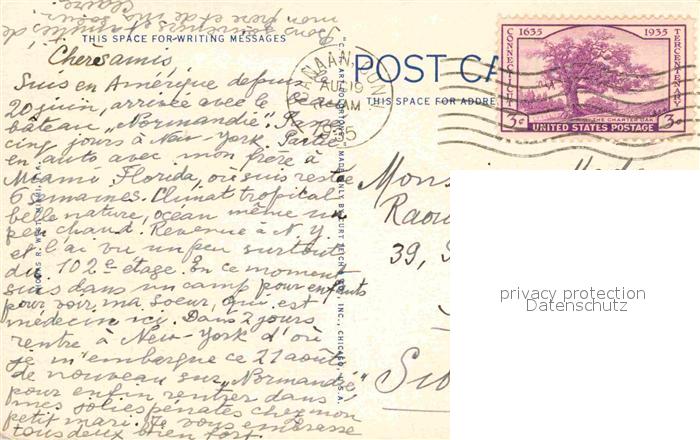 mon frère et de ma
THIS SPACE FOR WRITING MESSAGES
Chers amis,
Suis en Amérique depuis
20 juin, arrivée avec le beau
bâteau "Normandie". Passé
cinq jours à New-York. Partie
en auto avec mon frère à
Miami Florida, où suis restée
6 semaines. Climat tropical
belle nature, océan même un
peu chaud. Revenue à N.Y.
et l'ai vu un peu surtout
du 102e étage. En ce moment
suis dans un camp pour enfants
pour voir ma soeur, qui est
médecin ici. Dans 2 jours
rentre à New-York d'où
je m'embarque ce 21 août
de nouveau sur "Normandie"
pour enfin rentrer dans
mes jolies pénates chez mon
petit mari. Je vous embrasse
tous deux bien fort.
"C.T. ART-COLORTONE" MADE ONLY BY CURT TEICH & CO., INC., CHICAGO, U.S.A.
CANAAN, CONN.
AUG 19
AM
1935
POST CA
THIS SPACE FOR ADDRE
1635 1935
CONNECTICUT
TERCENTENARY
THE CHARTER OAK
3c 3c
UNITED STATES POSTAGE
Mons
Raou
39,
privacy protection
Datenschutz